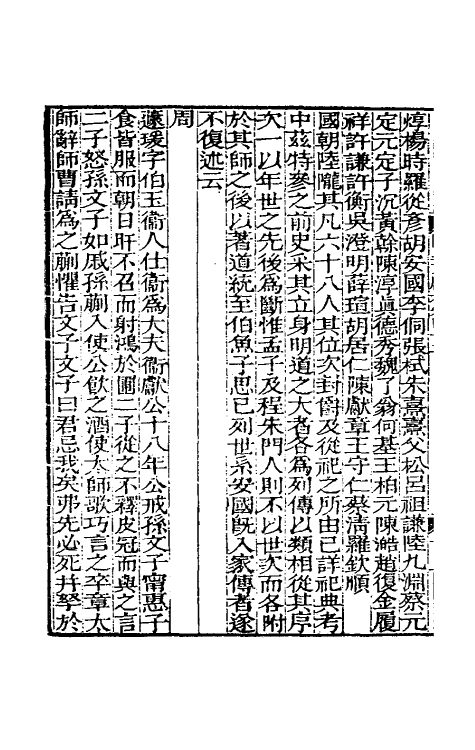 焞楊時羅從彥胡安國李侗張栻朱熹熹父松呂祖謙陸九淵蔡元
定元定子沉黃榦陳淳真德秀魏了翁何基王柏元陳澔趙復金履
祥許謙許衡吳澄明薛瑄胡居仁陳獻章王守仁蔡淸羅欽順
國朝陸隴其凡六十八人其位次封爵及從祀之所由已詳祀典考
中茲特參之前史采其立身明道之大者各為列傳以類相從其序
次一以年世之先後為斷惟孟子及程朱門人則不以世次而各附
於其師之後以著道統至伯魚子思已列世系安國旣入家傳者遂
不復述云
周
蘧瑗字伯玉衞人仕衞為大夫衞獻公十八年公戒孫文子甯惠子
食皆服而朝日旰不召而射鴻於囿二子從之不釋皮冠而與之言
二子怒孫文子如戚孫蒯入使公飮之酒使太師歌巧言之卒章太
師辭師曹請為之蒯懼告文子文子曰君忌我矣弗先必死幷孥於